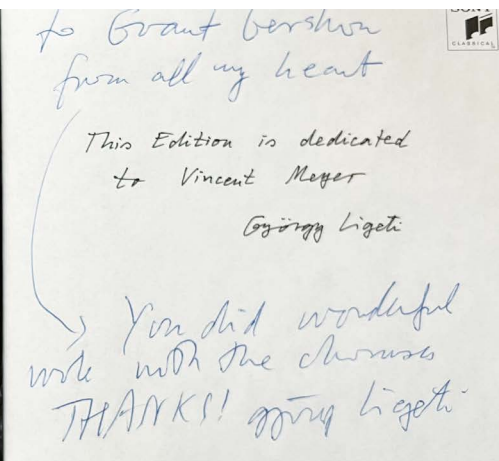 to Grant Gershon
from all my heart
SONY
CLASSICAL
This Edition is dedicated
to Vincent Meyer
György Ligeti
You did wonderful
work with the choruses
THANKS! György Ligeti